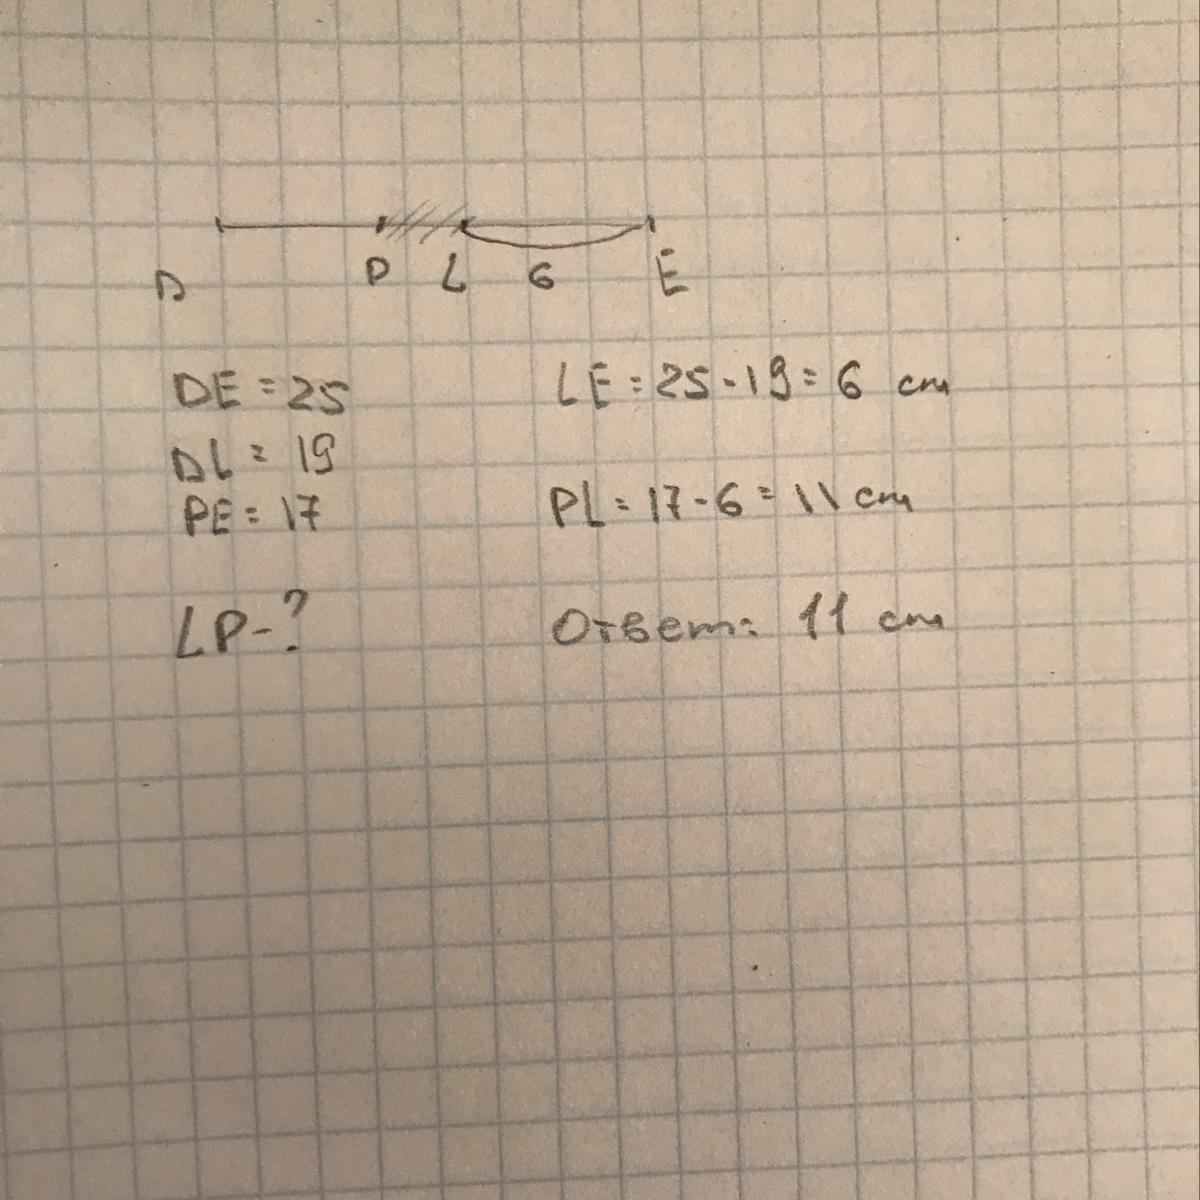 D P L 6 E
DE = 25
LE = 25 - 19 = 6 см
DL = 19
PE = 17
PL = 17 - 6 = 11 см
LP - ?
Ответ: 11 см